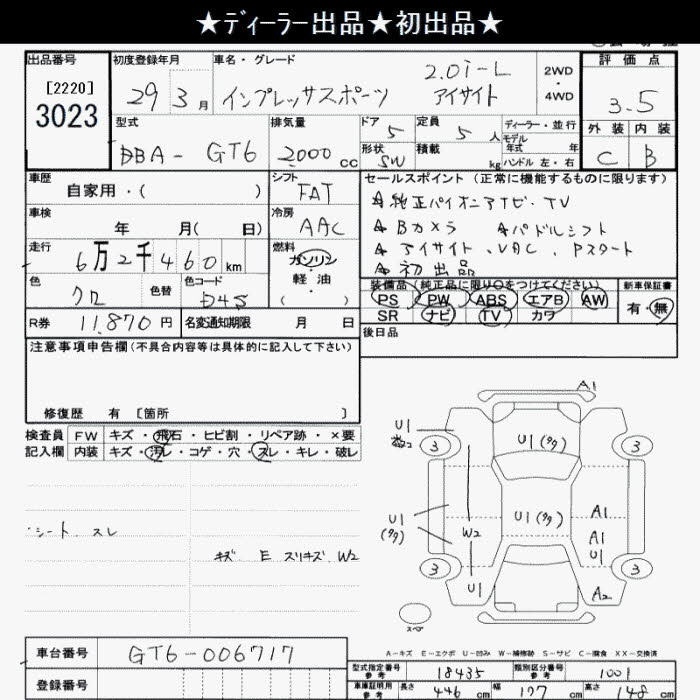 ★ディーラー出品★初出品★
出品番号
[2220]
3023
初度登録年月
29 3 月
車名・グレード
インプレッサスポーツ
2.0i-L
アイサイト
2WD
・
4WD
評価点
3.5
外装 内装
C B
型式
DBA- GT6
排気量
2000 cc
ドア 5
形状 SW
定員 5 人
積載 kg
ディーラー・並行
モデル年式 年
ハンドル 左・右
車歴
自家用・( )
シフト
FAT
車検
年 月( 日)
冷房
AAC
走行
6万2千460km
燃料
ガソリン
軽油
( )
色
クロ
色替
色コード
D4S
R券 11,870円
名変通知期限 月 日
セールスポイント(正常に機能するものに限ります)
純正パイオニアナビ・TV
Bカメラ パドルシフト
アイサイト、VDC、Pスタート
初出品
装備品(純正品に限り○をつけてください)
PS PW ABS エアB AW
SR ナビ TV カワ
新車保証書
有・無
後日品
注意事項申告欄(不具合内容等は具体的に記入して下さい)
修復歴 有 [箇所 ]
検査員記入欄
FW キズ・飛石・ヒビ割・リペア跡・×要
内装 キズ・汚レ・コゲ・穴・スレ・キレ・破レ
シート スレ
キズ E スリキズ W2
A1
U1
3
3
U1(タタ)
U1(タタ)
U1
(タタ)
W2
A1
A1
U1
3
3
U1
A2
スペア
A-キズ E-エクボ U-凹み W-補修跡 S-サビ C-腐食 XX-交換済
車台番号 GT6-006717
登録番号
型式指定番号 参考 18435
類別区分番号 参考 1001
車庫証明用 参考 長さ 446 cm 幅 177 cm 高さ 148 cm